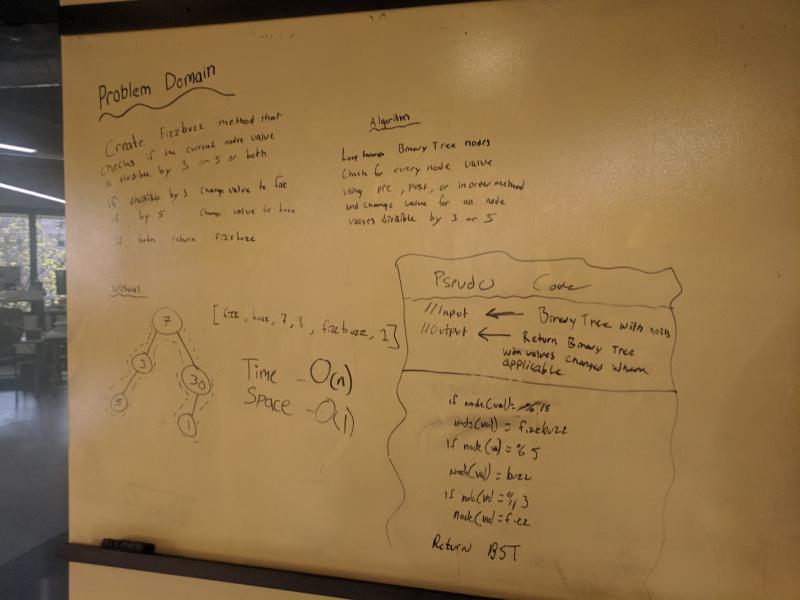 Problem Domain
Create Fizzbuzz method that
checks if the current nodes value
is divisible by 3 or 5 or both
if divisible by 3 change value to fizz
if by 5 change value to buzz
if both return Fizzbuzz
Algorithm
Loop through Binary Tree nodes
Check for every node value
using pre, post, or in order method
and change value for all node
values divisible by 3 or 5
Visual
7
3
30
5
1
[fizz, buzz, 7, 8, fizzbuzz, 1]
Time - O(n)
Space - O(1)
Pseudo Code
//Input ← Binary Tree with nodes
//Output ← Return Binary Tree
with values changed where
applicable
if node(val)=% 15
node(val) = fizzbuzz
if node(val) = % 5
node(val) = buzz
if node(val = % 3
node(val = fizz
Return BST